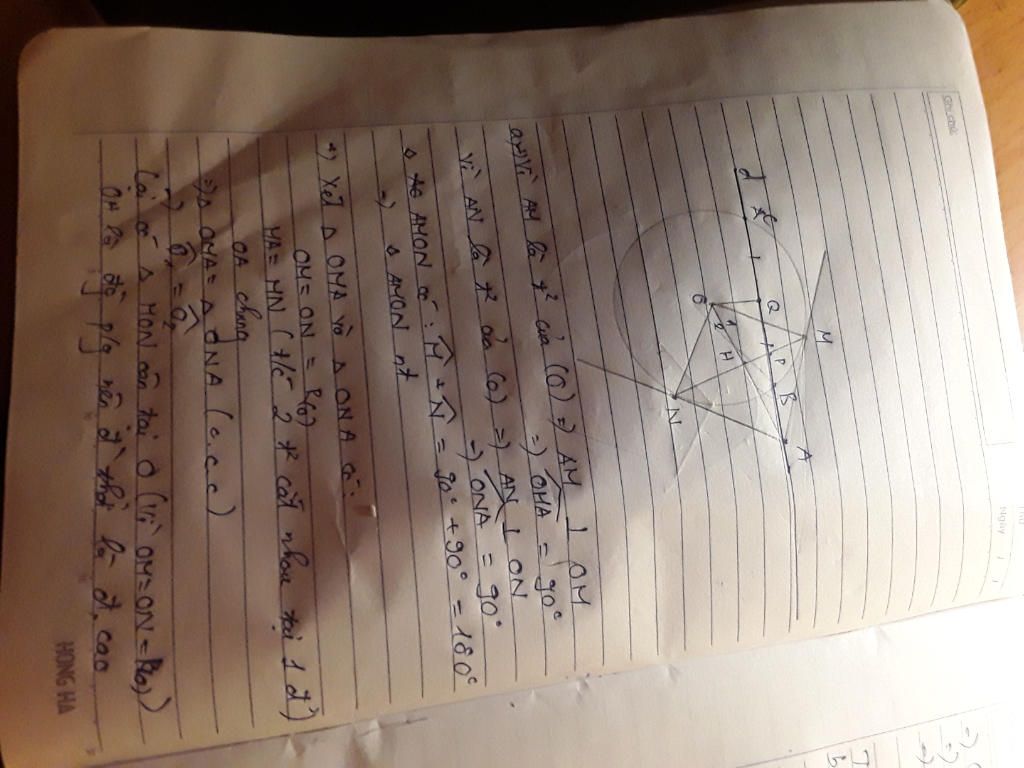 Ghi chú
Thứ
Ngày
d
1
Q
P
B
A
M
O
1
2
H
N
a) Vì AM là t² của (O) => AM ⊥ OM
=> OMA = 90°
Vì AN là t² của (O) => AN ⊥ ON
=> ONA = 90°
AMON có: M + N = 90° + 90° = 180°
=> AMON nt
+) Xét Δ OMA và Δ ONA có:
OM = ON = R(O)
MA = MN (t/c 2 t² cắt nhau tại 1 đ')
OA chung
=> Δ OMA = Δ ONA (c.c.c)
=> O₁ = O₂
Lại có Δ MON cân tại O (Vì OM = ON = R(O))
OA là đg p/g nên đ' thời là đ. cao
HỒNG HÀ